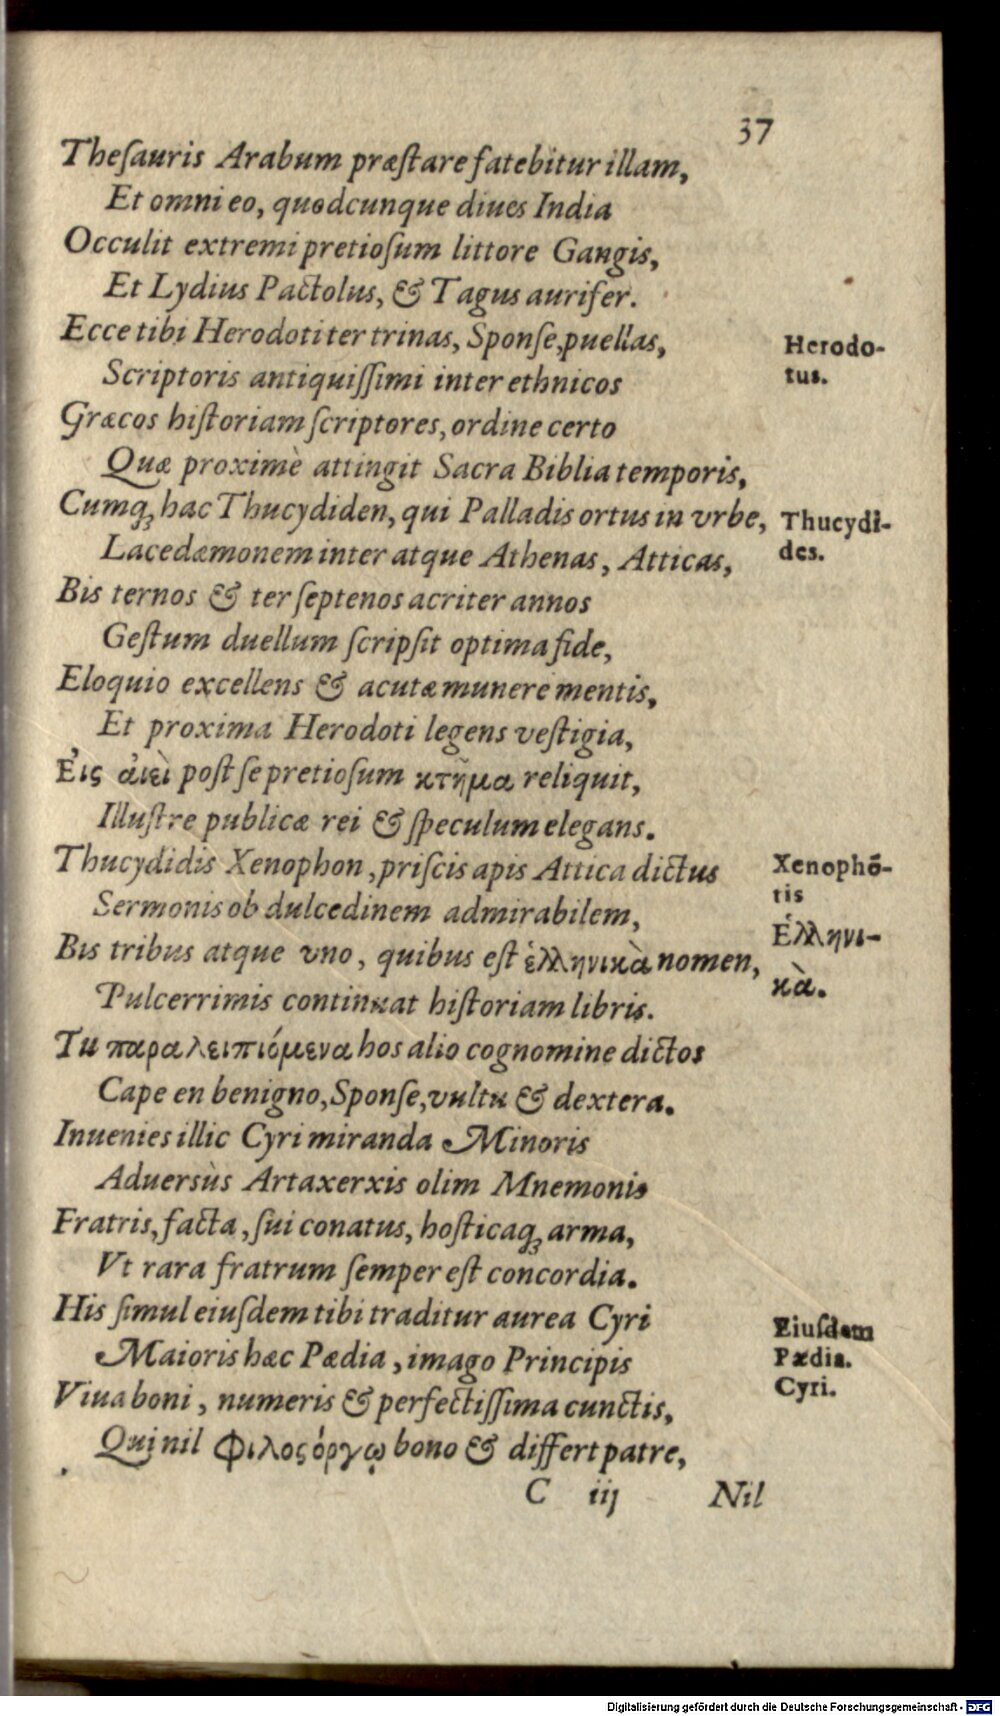 37
Theſauris Arabum præſtare fatebitur illam,
Et omni eo, quodcunque diues India
Occulit extremi pretioſum littore Gangis,
Et Lydius Pactolus, & Tagus aurifer.
Ecce tibi Herodoti ter trinas, Sponſe, puellas,
Herodo-
tus.
Scriptoris antiquiſſimi inter ethnicos
Græcos hiſtoriam ſcriptores, ordine certo
Quæ proximè attingit Sacra Biblia temporis,
Cumq́ꝫ hac Thucydiden, qui Palladis ortus in vrbe,
Thucydi-
des.
Lacedæmonem inter atque Athenas, Atticas,
Bis ternos & ter ſeptenos acriter annos
Geſtum duellum ſcripſit optima fide,
Eloquio excellens & acutæ munere mentis,
Et proxima Herodoti legens veſtigia,
Εἰς ἀιεὶ poſt ſe pretioſum κτῆμα reliquit,
Illuſtre publicæ rei & ſpeculum elegans.
Thucydidis Xenophon, priſcis apis Attica dictus
Xenophō-
tis
Ἑλληνι-
κὰ.
Sermonis ob dulcedinem admirabilem,
Bis tribus atque vno, quibus eſt ἑλληνικὰ nomen,
Pulcerrimis continuat hiſtoriam libris.
Tu παραλειπιόμενα hos alio cognomine dictos
Cape en benigno, Sponſe, vultu & dextera.
Inuenies illic Cyri miranda Minoris
Aduersùs Artaxerxis olim Mnemonis
Fratris, facta, ſui conatus, hoſticaqꝫ arma,
Vt rara fratrum ſemper eſt concordia.
His ſimul eiuſdem tibi traditur aurea Cyri
Eiuſdem
Pædia.
Cyri.
Maioris hæc Pædia, imago Principis
Viua boni, numeris & perfectiſſima cunctis,
Qui nil Φιλοςόργῳ bono & differt patre,
C iij Nil
Digitalisierung gefördert durch die Deutsche Forschungsgemeinschaft - DFG